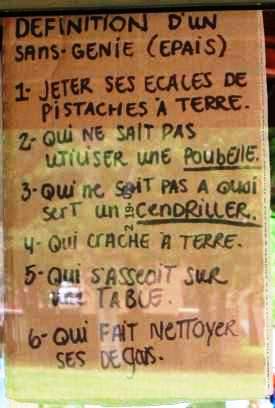 DEFINITION D'UN
SANS-GENIE (EPAIS)
1- JETER SES ECALES DE
PISTACHES À TERRE.
2- QUI NE SAIT PAS
UTILISER UNE POUBELLE.
3- QUI NE SAIT PAS A QUOI
SERT UN CENDRILLER.
4- QUI CRACHE À TERRE.
5- QUI S'ASSEOIT SUR
UNE TABLE.
6- QUI FAIT NETTOYER
SES DEGATS.